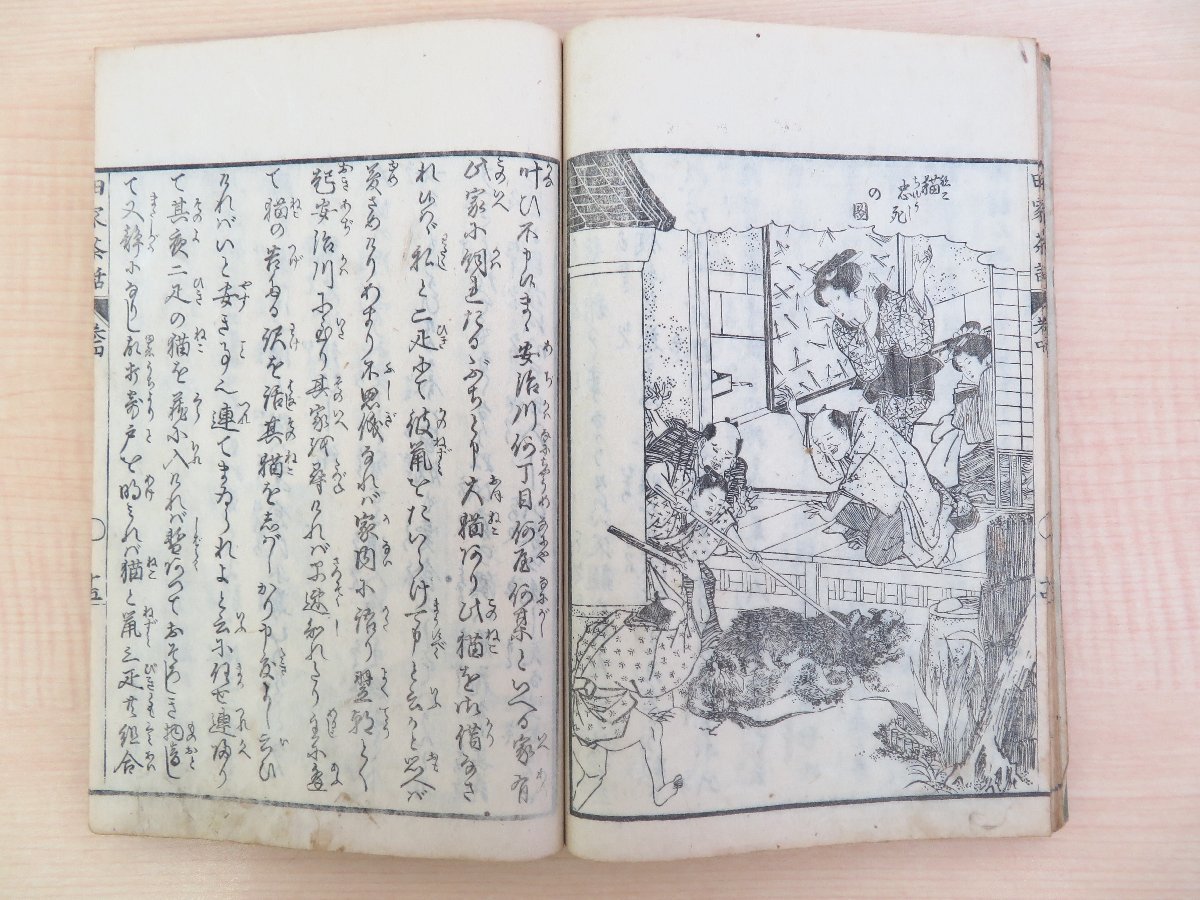 猫忠死
の圖
田家茶話
叶ひ不申候まゝ安治川何丁目何屋何某といへる家有
此家に飼置たるぶちにて大猫あり此猫を御借なさ
れ候はゞ私と二疋にて彼鼠をたいらげ可申と云かと思へば
夢さめけりあまり不思儀なれば家内に語り翌朝とく
起安治川に至り其家を尋ければ早速知れたり
て猫の訳を話其猫を志ばしかり申度よし云ひ
ければいと安き事也連てまゐられよと云に任せ連帰り
て其夜二疋の猫を蔵に入ければ暫ありておそろしき物音し
て又静になりし戸を明みれば猫と鼠三疋共組合
田家茶話
十五